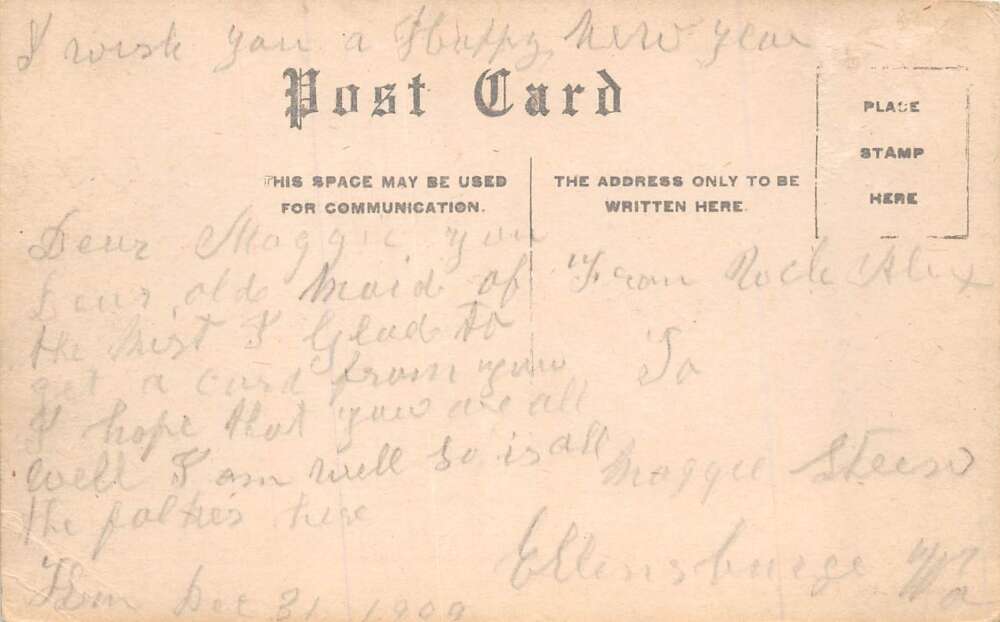 I wish you a Happy New Year
Post Card
PLACE
STAMP
HERE
THIS SPACE MAY BE USED
FOR COMMUNICATION.
THE ADDRESS ONLY TO BE
WRITTEN HERE.
Dear Maggie you
Dear olde Maid of
the I Glad to
get a card from you
I hope that you are all
well I am well so is all
the here
Dec 31 1909
From
To
Maggie
Ellensburge